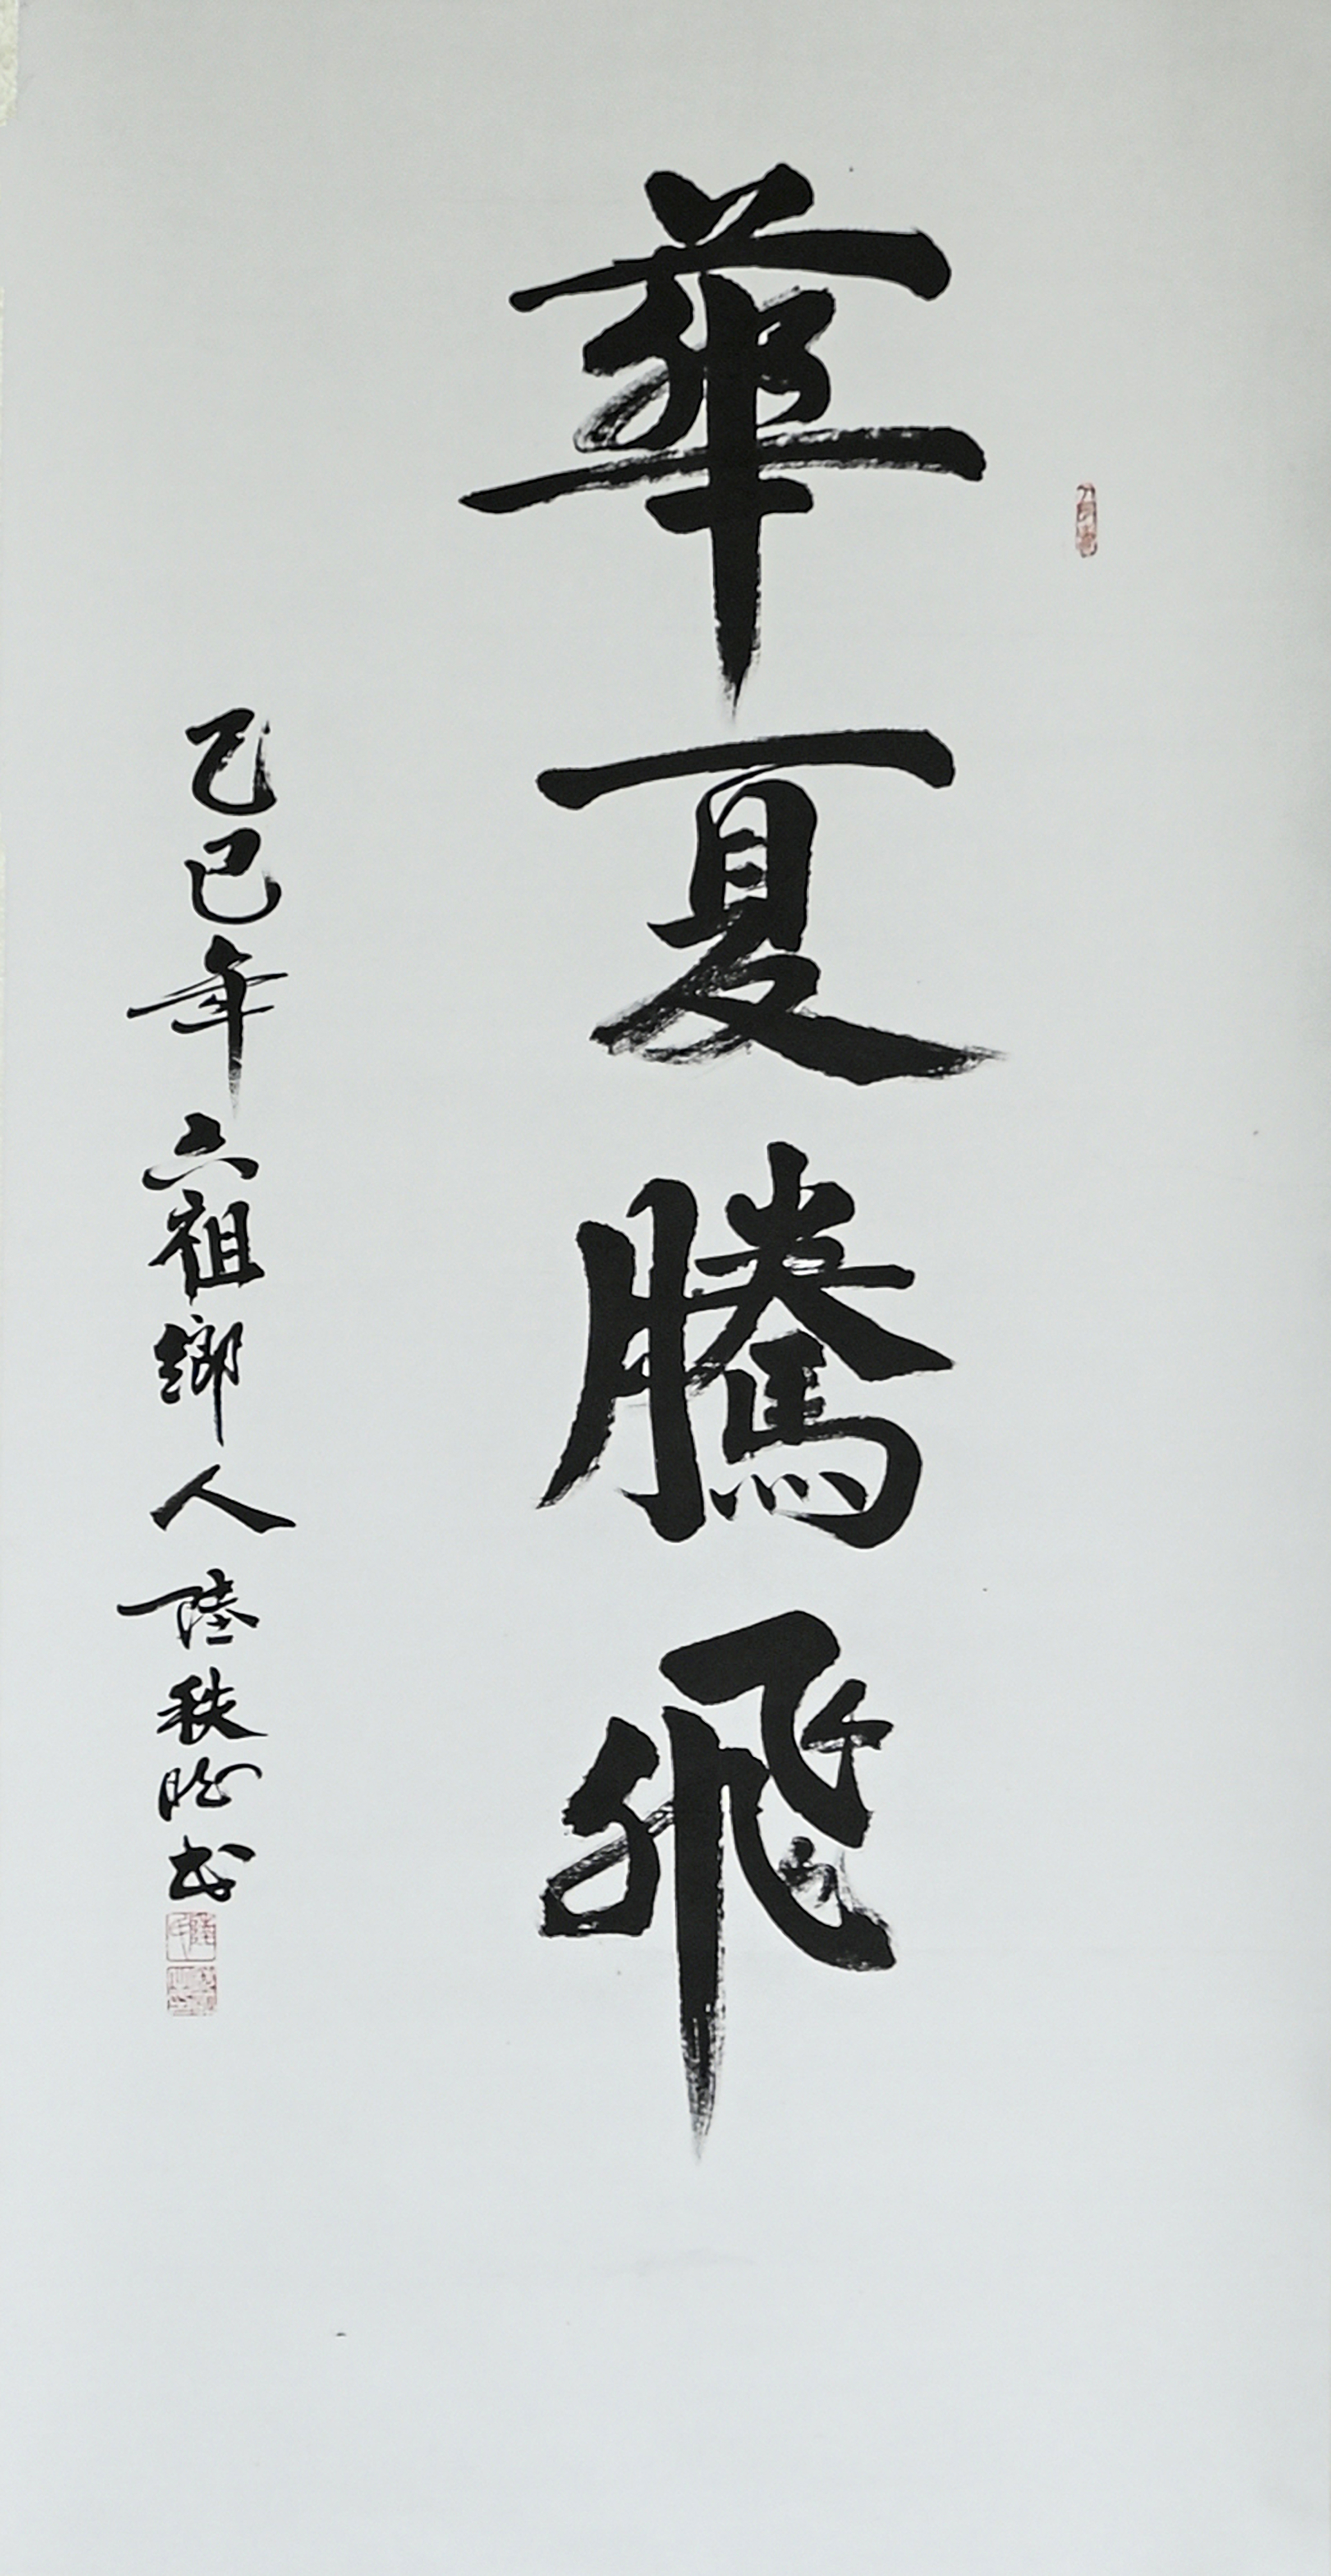 華夏騰飛
乙巳年 六祖鄉人 陸秩 書